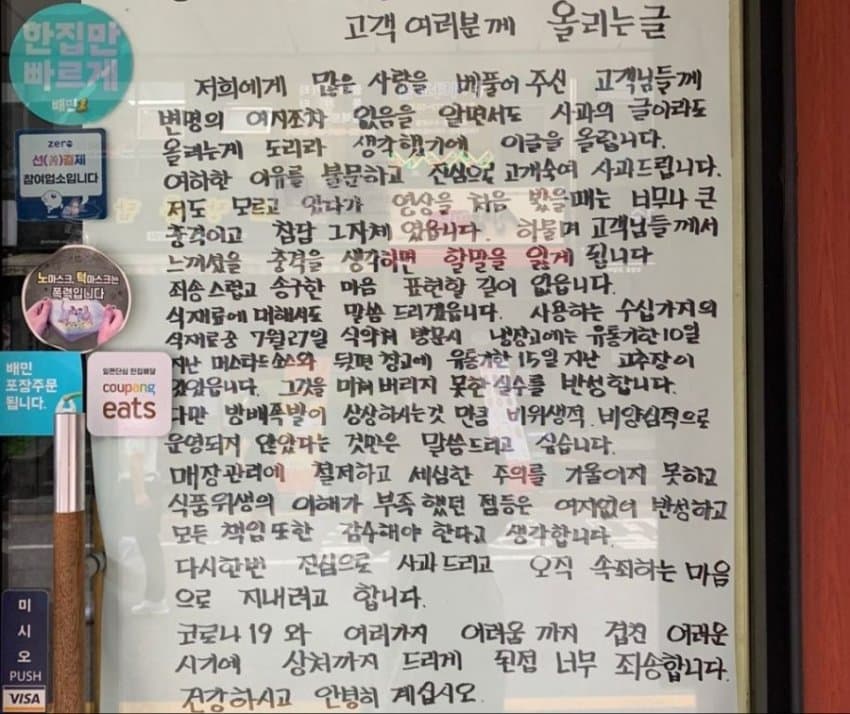 고객 여러분께 올리는글
저희에게 많은 사랑을 베풀어 주신 고객님들께
변명의 여지조차 없음을 알면서도 사과의 글이라도
올리는게 도리라 생각했기에 이글을 올립니다.
여하한 이유를 불문하고 진심으로 고개숙여 사과드립니다.
저도 모르고 있다가 영상을 처음 봤을때는 너무나 큰
충격이고 참담 그자체 였읍니다. 하물며 고객님들께서
느끼셨을 충격을 생각하면 할말을 잃게 됩니다
죄송스럽고 송구한 마음 표현할 길이 없읍니다.
식재료에 대해서도 말씀 드리겠읍니다. 사용하는 수십가지의
식재료중 7월27일 식약처 방문시 냉장고에는 유통기한10일
지난 머스타드소스와 뒷편 창고에 유통기한15일 지난 고추장이
있었읍니다. 그것을 미쳐 버리지 못한 실수를 반성합니다.
다만 방배족발이 상상하시는것 만큼 비위생적, 비양심적으로
운영되지 않았다는 것만은 말씀드리고 싶습니다.
매장관리에 철저하고 세심한 주의를 기울이지 못하고
식품위생의 이해가 부족했던 점등은 여지없이 반성하고
모든 책임또한 감수해야 한다고 생각합니다.
다시한번 진심으로 사과드리고 오직 속죄하는 마음
으로 지내려고 합니다.
코로나19 와 여러가지 어려움 까지 겹친 어려운
시기에 상처까지 드리게 된점 너무 죄송합니다.
건강하시고 안녕히 계십시오.
한집만
빠르게
배민1
zero
선(善)결제
참여업소입니다
노마스크, 턱마스크는
폭력입니다
배민
포장주문
됩니다.
일편단심 한집배달
coupang
eats
미
시
오
PUSH
VISA